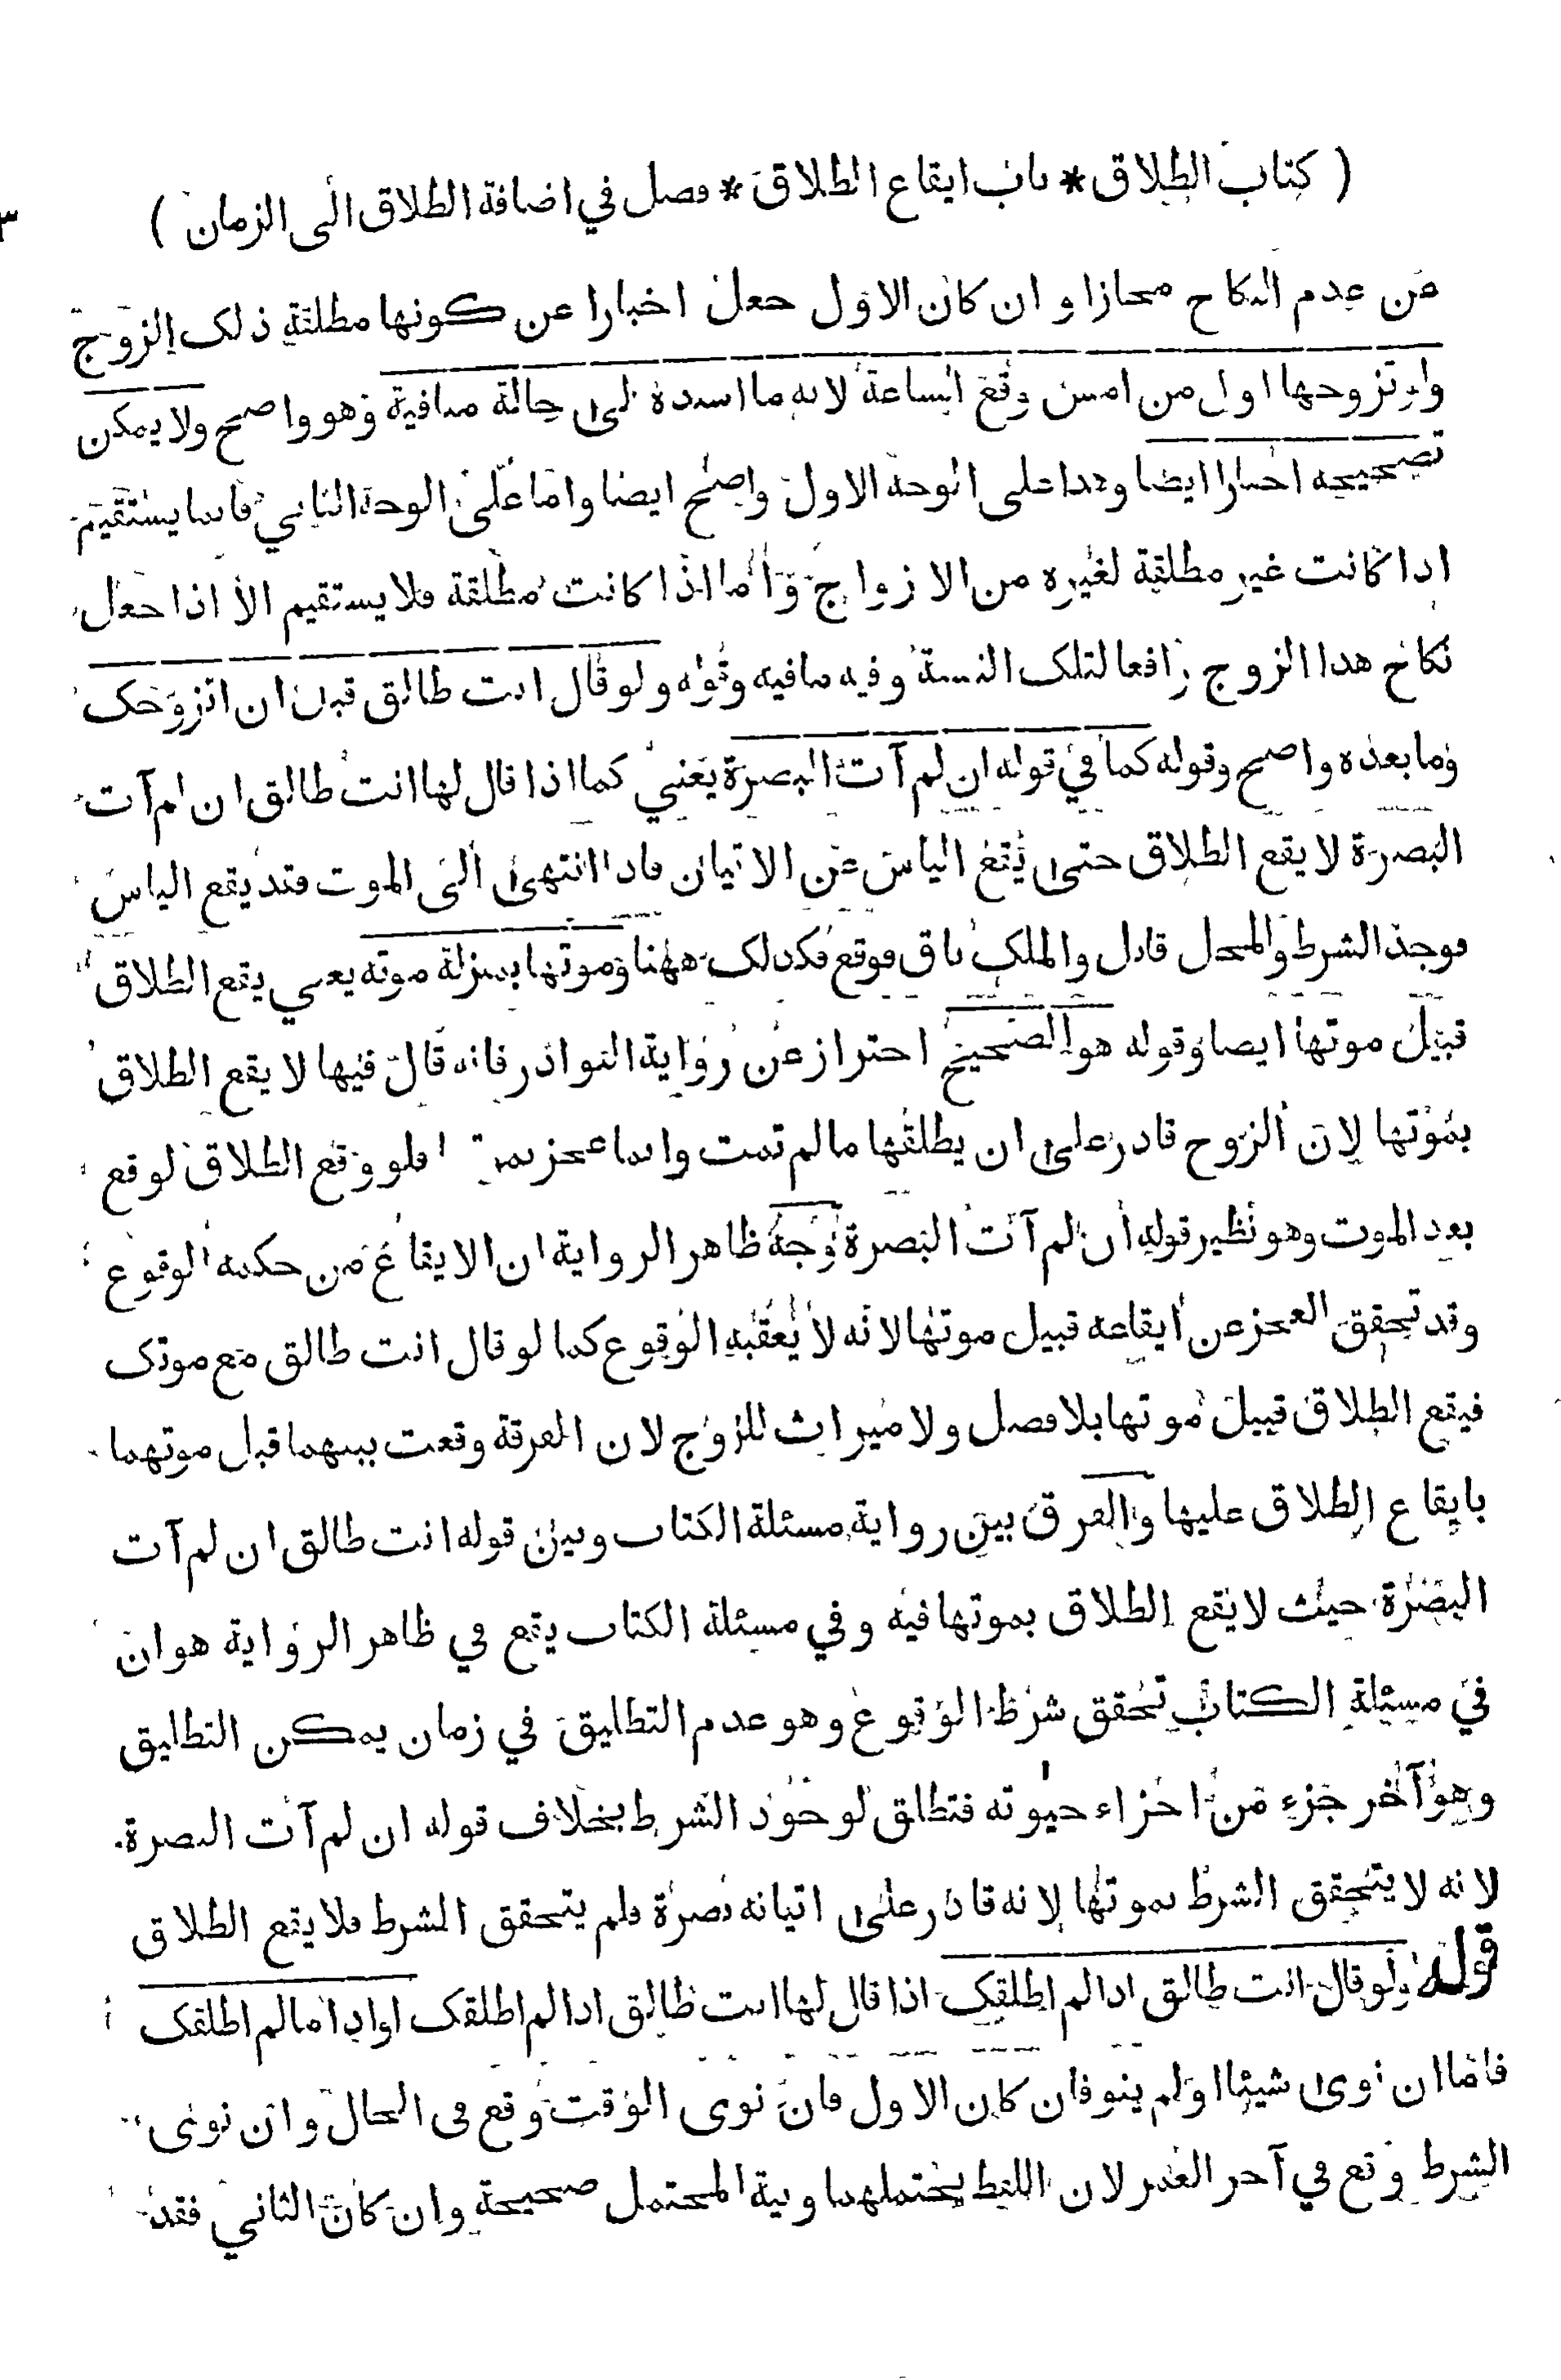 ( كتاب الطلاق * باب ايقاع الطلاق * فصل في اضافة الطلاق الى الزمان )
٣
من عدم النكاح مجازا و ان كان الاول جعل اخبارا عن كونها مطلقة ذلك الزوج
ولو تزوجها اول من امس وقع الساعة لانه ما اسنده الى حالة منافية وهو واضح ولا يمكن
تصحيحه اخبارا ايضا وهذا على الوجه الاول واضح ايضا واما على الوجه الثاني فانما يستقيم
اذا كانت غير مطلقة لغيره من الازواج واما اذا كانت مطلقة فلا يستقيم الا اذا جعل
نكاح هذا الزوج رافعا لتلك النسبة وفيه مافيه وقوله ولو قال انت طالق قبل ان اتزوجك
وما بعده واضح وقوله كما في قوله ان لم آت البصرة يعني كما اذا قال لها انت طالق ان لم آت
البصرة لا يقع الطلاق حتى يقع الياس عن الاتيان فاذا انتهى الى الموت فقد يقع الياس
فوجد الشرط والمحل قابل والملك باق فوقع فكذلك ههنا وموتها بمنزلة موته يعني يقع الطلاق
قبيل موتها ايضا وقوله هو الصحيح احتراز عن رواية النوادر فانه قال فيها لا يقع الطلاق
بموتها لان الزوج قادر على ان يطلقها مالم تمت وانما عجز بموتها فلو وقع الطلاق لوقع
بعد الموت وهو نظير قوله ان لم آت البصرة وجه ظاهر الرواية ان الايقاع من حكمه الوقوع
وقد تحقق العجز عن ايقاعه قبيل موتها لانه لا يعقبه الوقوع كما لو قال انت طالق مع موتك
فيقع الطلاق قبيل موتها بلا فصل ولا ميراث للزوج لان الفرقة وقعت بينهما قبل موتهما
بايقاع الطلاق عليها والفرق بين رواية مسئلة الكتاب وبين قوله انت طالق ان لم آت
البصرة حيث لا يقع الطلاق بموتها فيه وفي مسئلة الكتاب يقع في ظاهر الرواية هو ان
في مسئلة الكتاب تحقق شرط الوقوع وهو عدم التطليق في زمان يمكن التطليق
وهو آخر جزء من اجزاء حيوته فتطلق لوجود الشرط بخلاف قوله ان لم آت البصرة
لانه لا يتحقق الشرط بموتها لانه قادر على اتيانه بصرة فلم يتحقق الشرط فلا يقع الطلاق
قوله ولو قال انت طالق اذا لم اطلقك اذا قال لها انت طالق اذا لم اطلقك او اذا ما لم اطلقك
فاما ان نوى شيئا اولم ينو فان كان الاول فان نوى الوقت وقع في الحال وان نوى
الشرط وقع في آخر العمر لان اللفظ يحتملهما ونية المحتمل صحيحة وان كان الثاني فقد